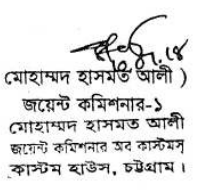 মোহাম্মদ হাসমত আলী )
জয়েন্ট কমিশনার-১
মোহাম্মদ হাসমত আলী
জয়েন্ট কমিশনার অব কাস্টমস্
কাস্টম হাউস, চট্টগ্রাম।